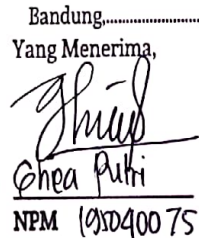 Bandung,......................
Yang Menerima,
Ghea Putri
NPM 195040075